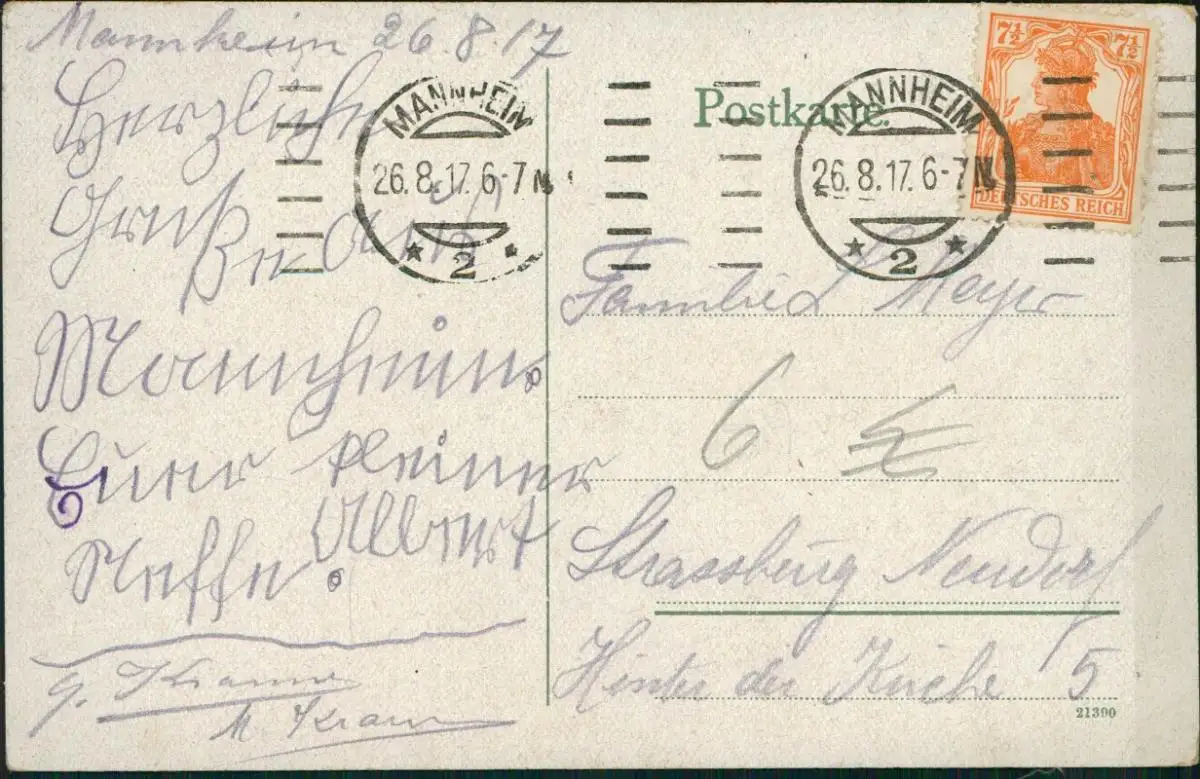 Mannheim 26.8.17
Herzliche
Grüße aus
Mannheim.
Euer kleiner
Neffe. Albert
M. Kram
Postkarte
MANNHEIM
26.8.17.6-7N
* 2 *
MANNHEIM
26.8.17.6-7N
* 2 *
7½ 7½
DEUTSCHES REICH
Familie L Meyer
6
Strassburg Neudorf
Hinter der Kirche 5
21390